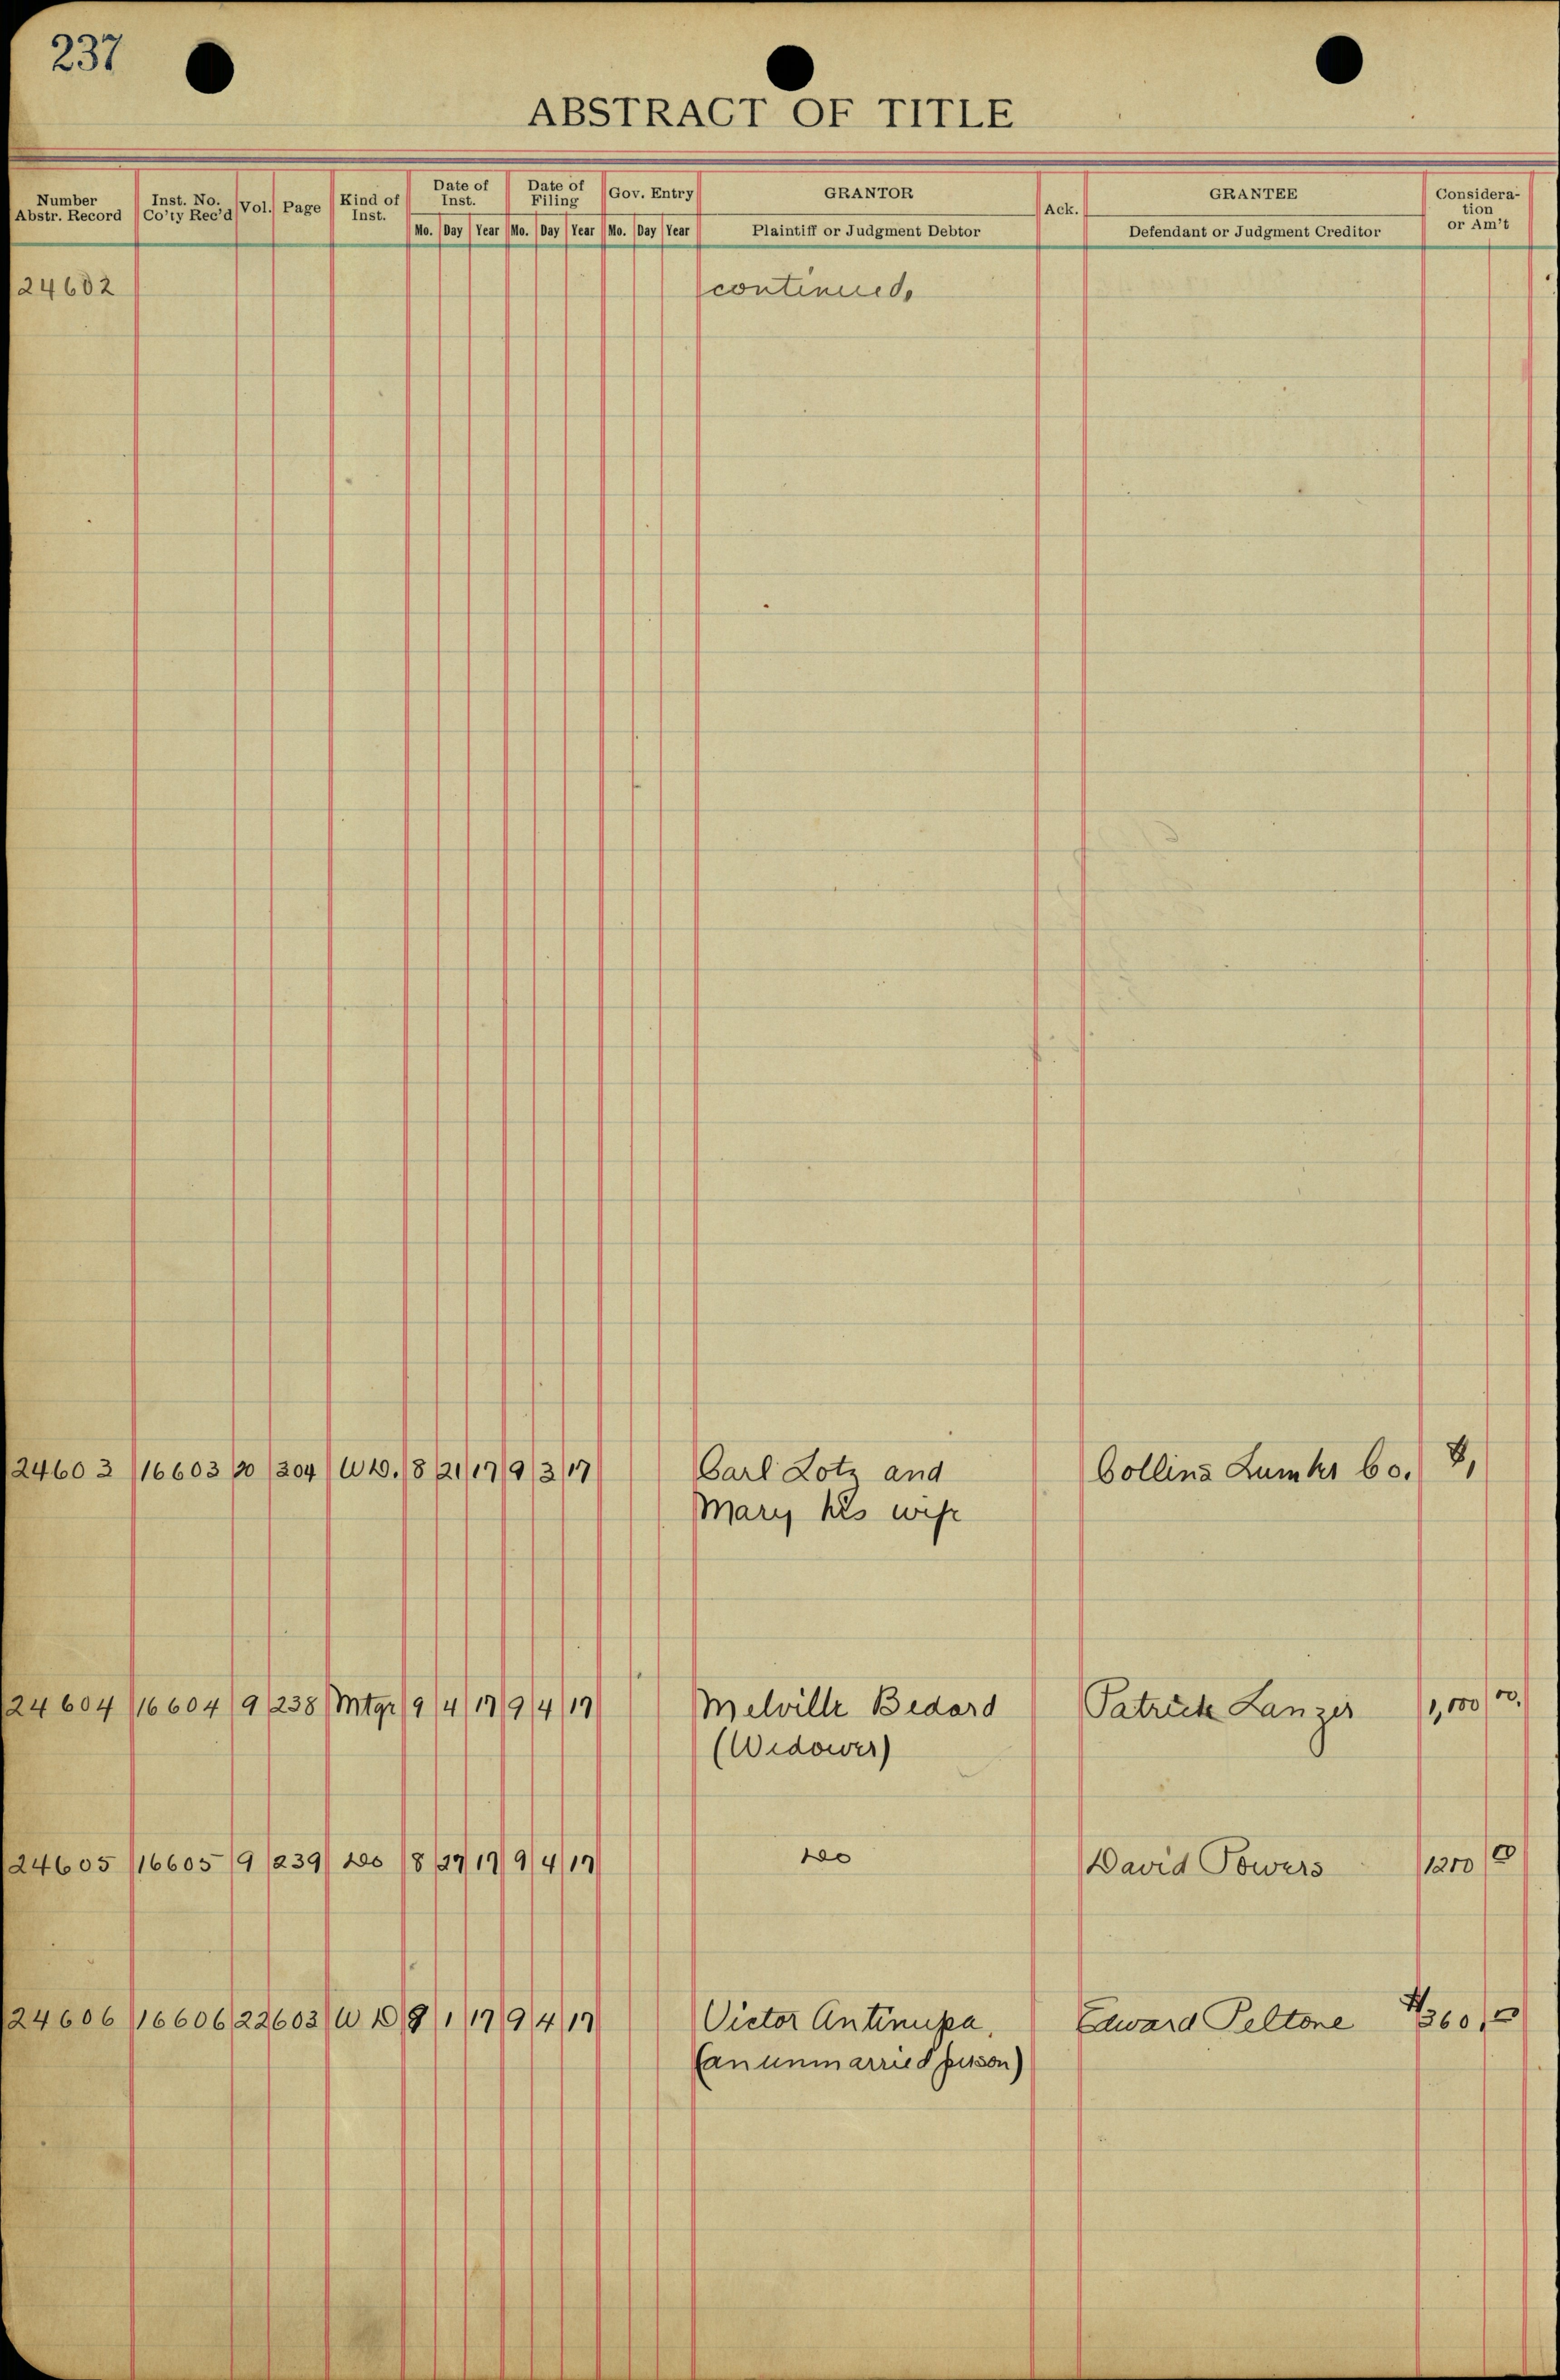 237
ABSTRACT OF TITLE
Number Abstr. Record | Inst. No. Co'ty Rec'd | Vol. | Page | Kind of Inst. | Date of Inst. Mo. Day Year | Date of Filing Mo. Day Year | Gov. Entry Mo. Day Year | GRANTOR Plaintiff or Judgment Debtor | Ack. | GRANTEE Defendant or Judgment Creditor | Consideration or Am't
24602 continued.
24603 16603 20 204 W D. 8 21 17 9 3 17 Carl Lotz and Collins Lumber Co.
Mary his wife
24604 16604 9 238 Mtge 9 4 17 9 4 17 Melville Bedard Patrick Lanzer 1,000 00
(Widower)
24605 16605 9 239 do 8 27 17 9 4 17 do David Powers 1200 00
24606 16606 22 603 W D 9 1 17 9 4 17 Victor Edward Peltone $360, 00
(an unmarried person)